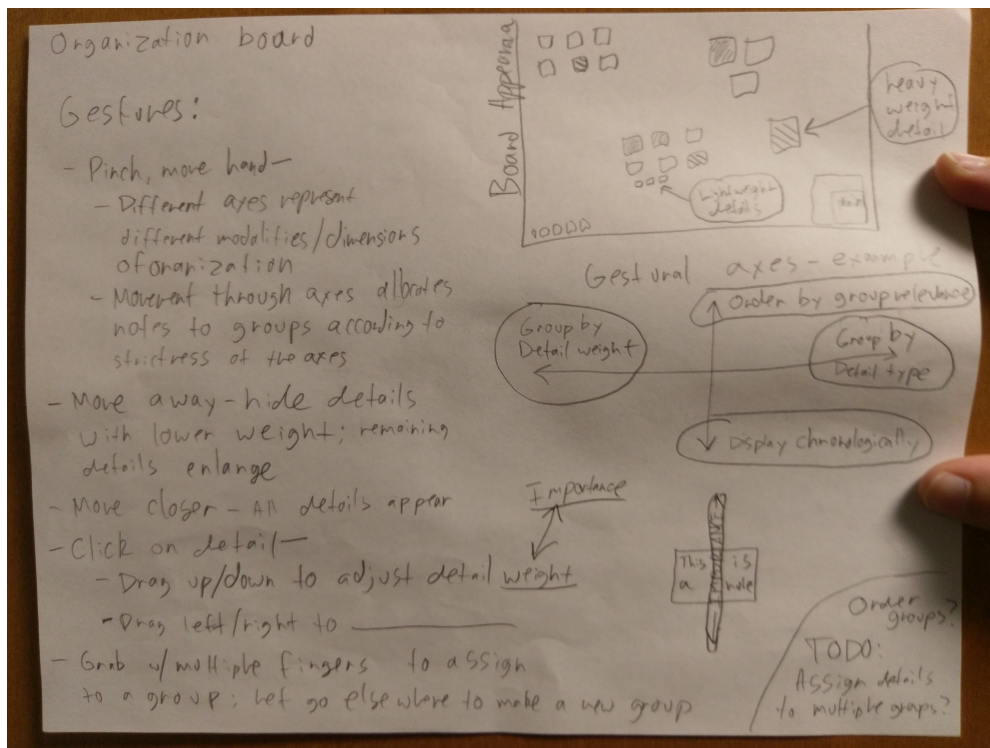 Organization board
Gestures:
- Pinch, move hand -
- Different axes represent
different modalities/dimensions
of organization
- Movement through axes
notes to groups according to
strictness of the axes
- Move away - hide details
with lower weight; remaining
details enlarge
- Move closer - All details appear
- Click on detail -
- Drag up/down to adjust detail weight
- Drag left/right to
- Grab w/multiple fingers to assign
to a group; Let go elsewhere to make a new group
Board
heavy
weight
detail
Lightweight
details
Gestural axes - example
Order by group relevance
Group by
Detail weight
Group by
Detail type
Display chronologically
Importance
This is
a note
Order
groups?
TODO:
Assign details
to multiple groups?